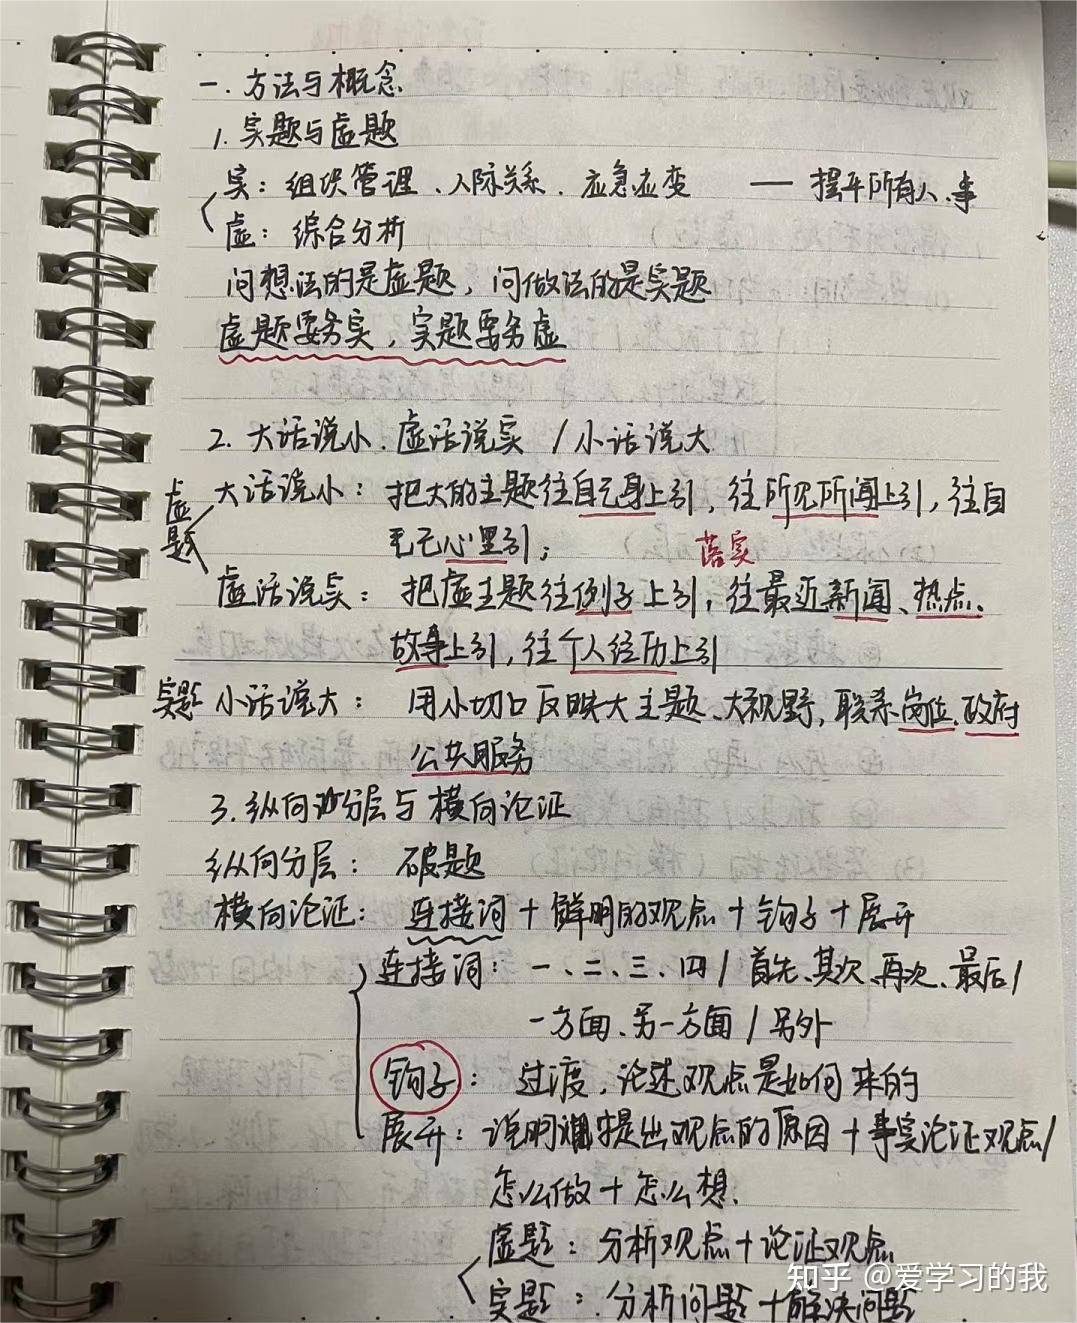 一.方法与概念
1.实题与虚题
实：组织管理、人际关系、应急应变 — 摆平所有人、事
虚：综合分析
问想法的是虚题，问做法的是实题
虚题要务实，实题要务虚
2.大话说小、虚话说实 / 小话说大
虚题
大话说小：把大的主题往自己身上引，往所见所闻上引，往自
己心里引；
落实
虚话说实：把虚主题往例子上引，往最近新闻、热点、
故事上引，往个人经历上引
实题 小话说大：用小切口反映大主题、大视野，联系岗位、政府
公共服务
3.纵向分层与横向论证
纵向分层：破题
横向论证：连接词+鲜明的观点+钩子+展开
连接词：一、二、三、四/首先、其次、再次、最后/
一方面、另一方面/另外
钩子：过渡，论述观点是如何来的
展开：说明提出观点的原因+事实论证观点/
怎么做+怎么想.
虚题：分析观点+论证观点
实题：分析问题+解决问题
知乎 @爱学习的我